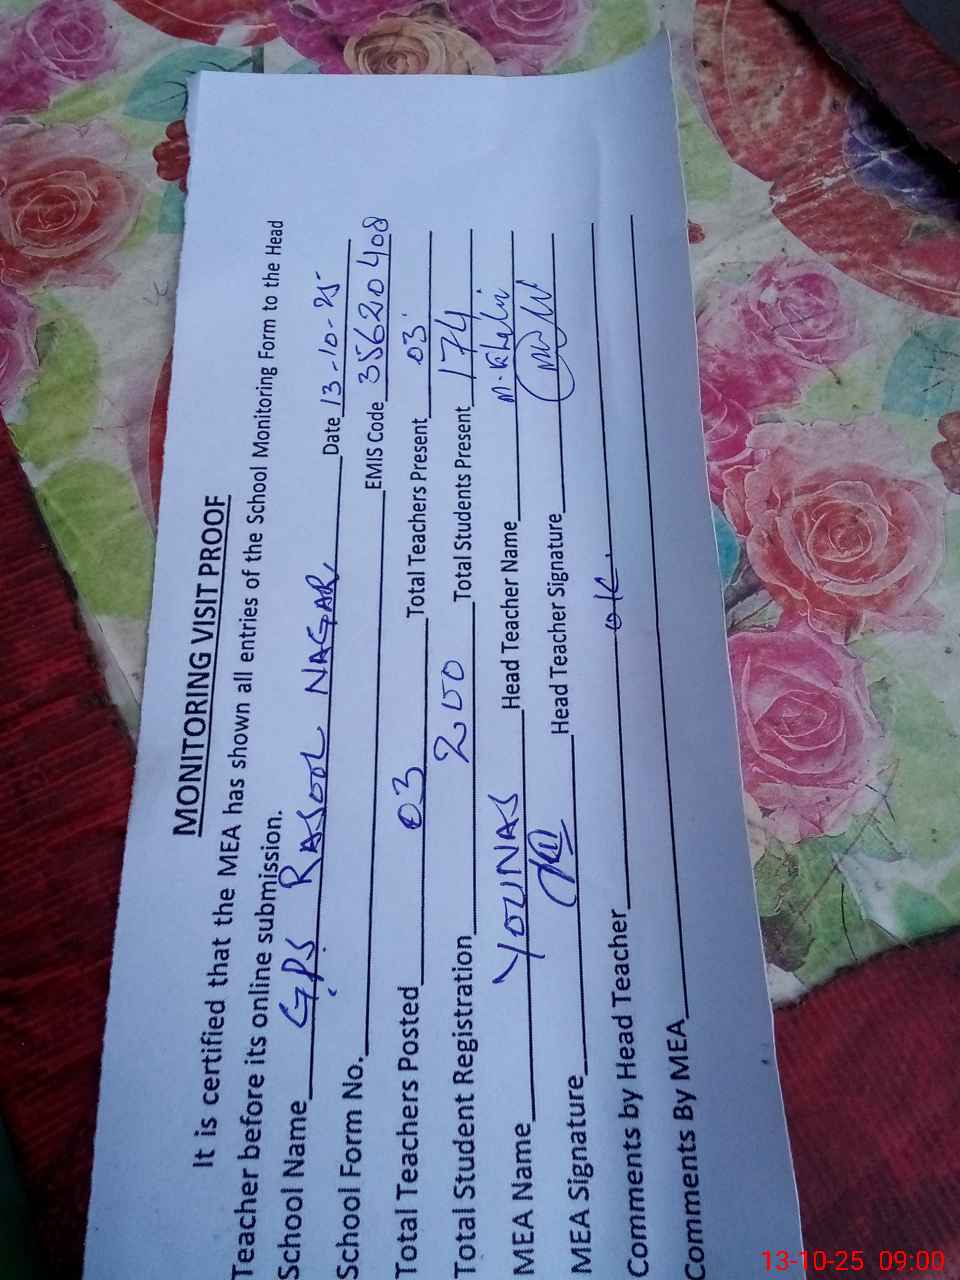 MONITORING VISIT PROOF
It is certified that the MEA has shown all entries of the School Monitoring Form to the Head
Teacher before its online submission.
School Name GPS RASOOL NAGAR Date 13-10-25
School Form No. EMIS Code 35620408
Total Teachers Posted 03 Total Teachers Present 03
Total Student Registration 200 Total Students Present 174
MEA Name YOUNAS Head Teacher Name M. Khalin
MEA Signature Head Teacher Signature
Comments by Head Teacher OK.
Comments By MEA
13-10-25 09:00